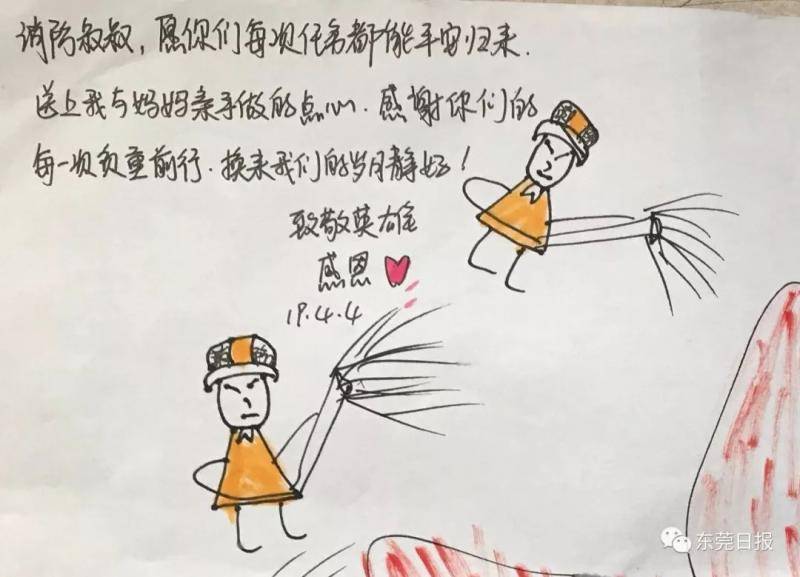 消防叔叔，愿你们每次任务都能平安归来.
送上我与妈妈亲手做的点心.感谢你们的
每一次负重前行.换来我们的岁月静好！
致敬英雄
感恩
19.4.4
消防
东莞日报